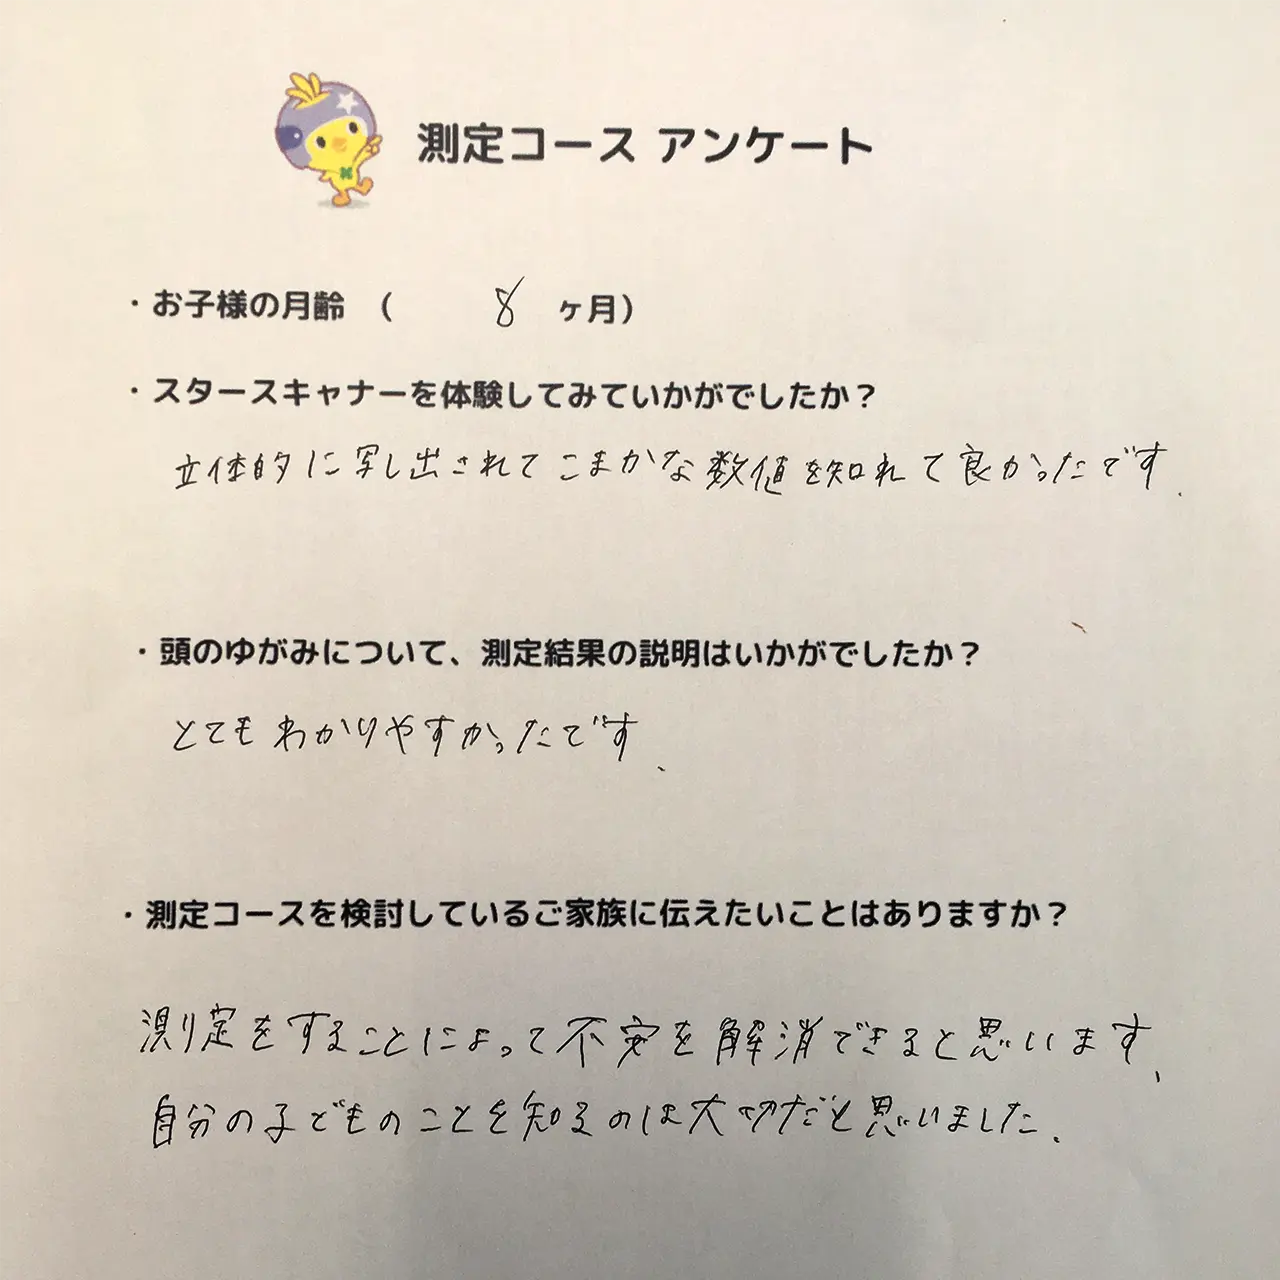 測定コース アンケート
・お子様の月齢 ( 8 ヶ月)
・スタースキャナーを体験してみていかがでしたか？
立体的に写し出されてこまかな数値を知れて良かったです.
・頭のゆがみについて、測定結果の説明はいかがでしたか？
とてもわかりやすかったです.
・測定コースを検討しているご家族に伝えたいことはありますか？
測定をすることによって不安を解消できると思います.
自分の子どものことを知るのは大切だと思いました.